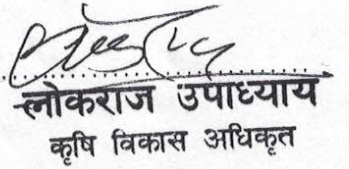 लोकराज उपाध्याय
कृषि विकास अधिकृत